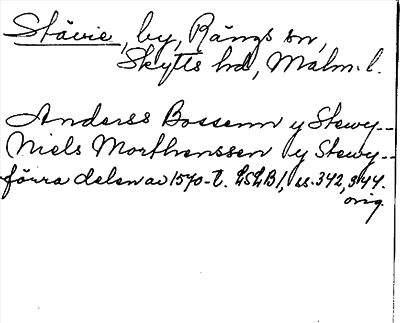 Stävie, by, Rängs sn,
Skytts hd, Malm. l.
Anderss Bossenn y Stewy--
Niels Morthenssen y Stewy--
förra delen av 1570-t. LSLB 1, ss. 342, 344.
orig.